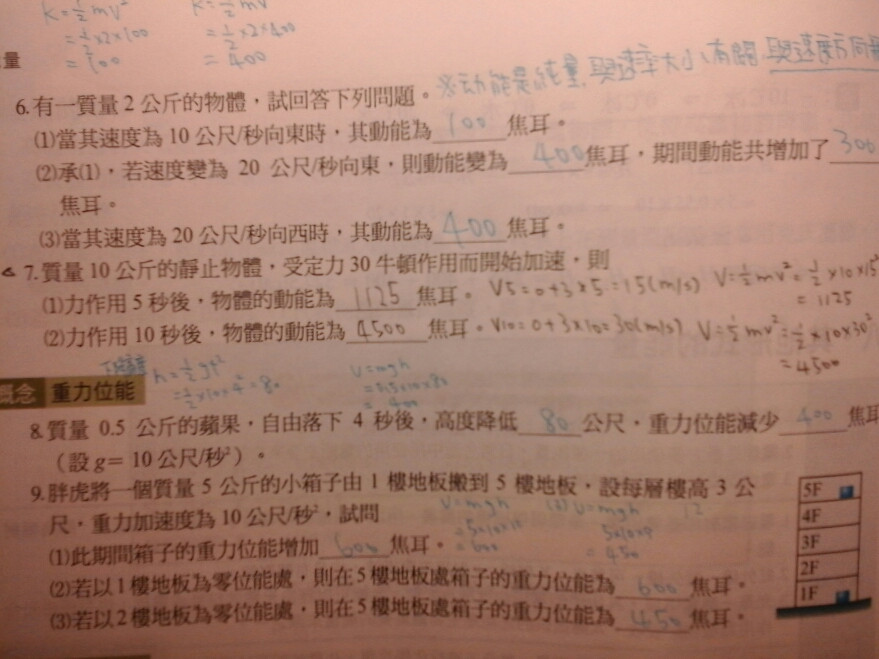 K=½mv² K=½mv²
=½×2×100 =½×2×400
=100 =400
量
※动能是純量,與速率大小有關,與速度方向
6.有一質量 2 公斤的物體,試回答下列問題。
(1)當其速度為 10 公尺/秒向東時,其動能為 100 焦耳。
(2)承(1),若速度變為 20 公尺/秒向東,則動能變為 400 焦耳,期間動能共增加了 300
焦耳。
(3)當其速度為 20 公尺/秒向西時,其動能為 400 焦耳。
7.質量 10 公斤的靜止物體,受定力 30 牛頓作用而開始加速,則
(1)力作用 5 秒後,物體的動能為 1125 焦耳。 V5=0+3×5=15(m/s) V=½mv²=½×10×15²
=1125
(2)力作用 10 秒後,物體的動能為 4500 焦耳。 V10=0+3×10=30(m/s) V=½mv²=½×10×30²
=4500
h=½gt² U=mgh
=½×10×4²=80 =0.5×10×80
=400
概念 重力位能
8.質量 0.5 公斤的蘋果,自由落下 4 秒後,高度降低 80 公尺,重力位能減少 400 焦耳
(設 g= 10 公尺/秒²)。
9.胖虎將一個質量 5 公斤的小箱子由 1 樓地板搬到 5 樓地板,設每層樓高 3 公
尺,重力加速度為 10 公尺/秒²,試問
U=mgh U=mgh 12
=5×10×12 5×10×9
=600 =450
(1)此期間箱子的重力位能增加 600 焦耳。
(2)若以 1 樓地板為零位能處,則在 5 樓地板處箱子的重力位能為 600 焦耳。
(3)若以 2 樓地板為零位能處,則在 5 樓地板處箱子的重力位能為 450 焦耳。
5F
4F
3F
2F
1F